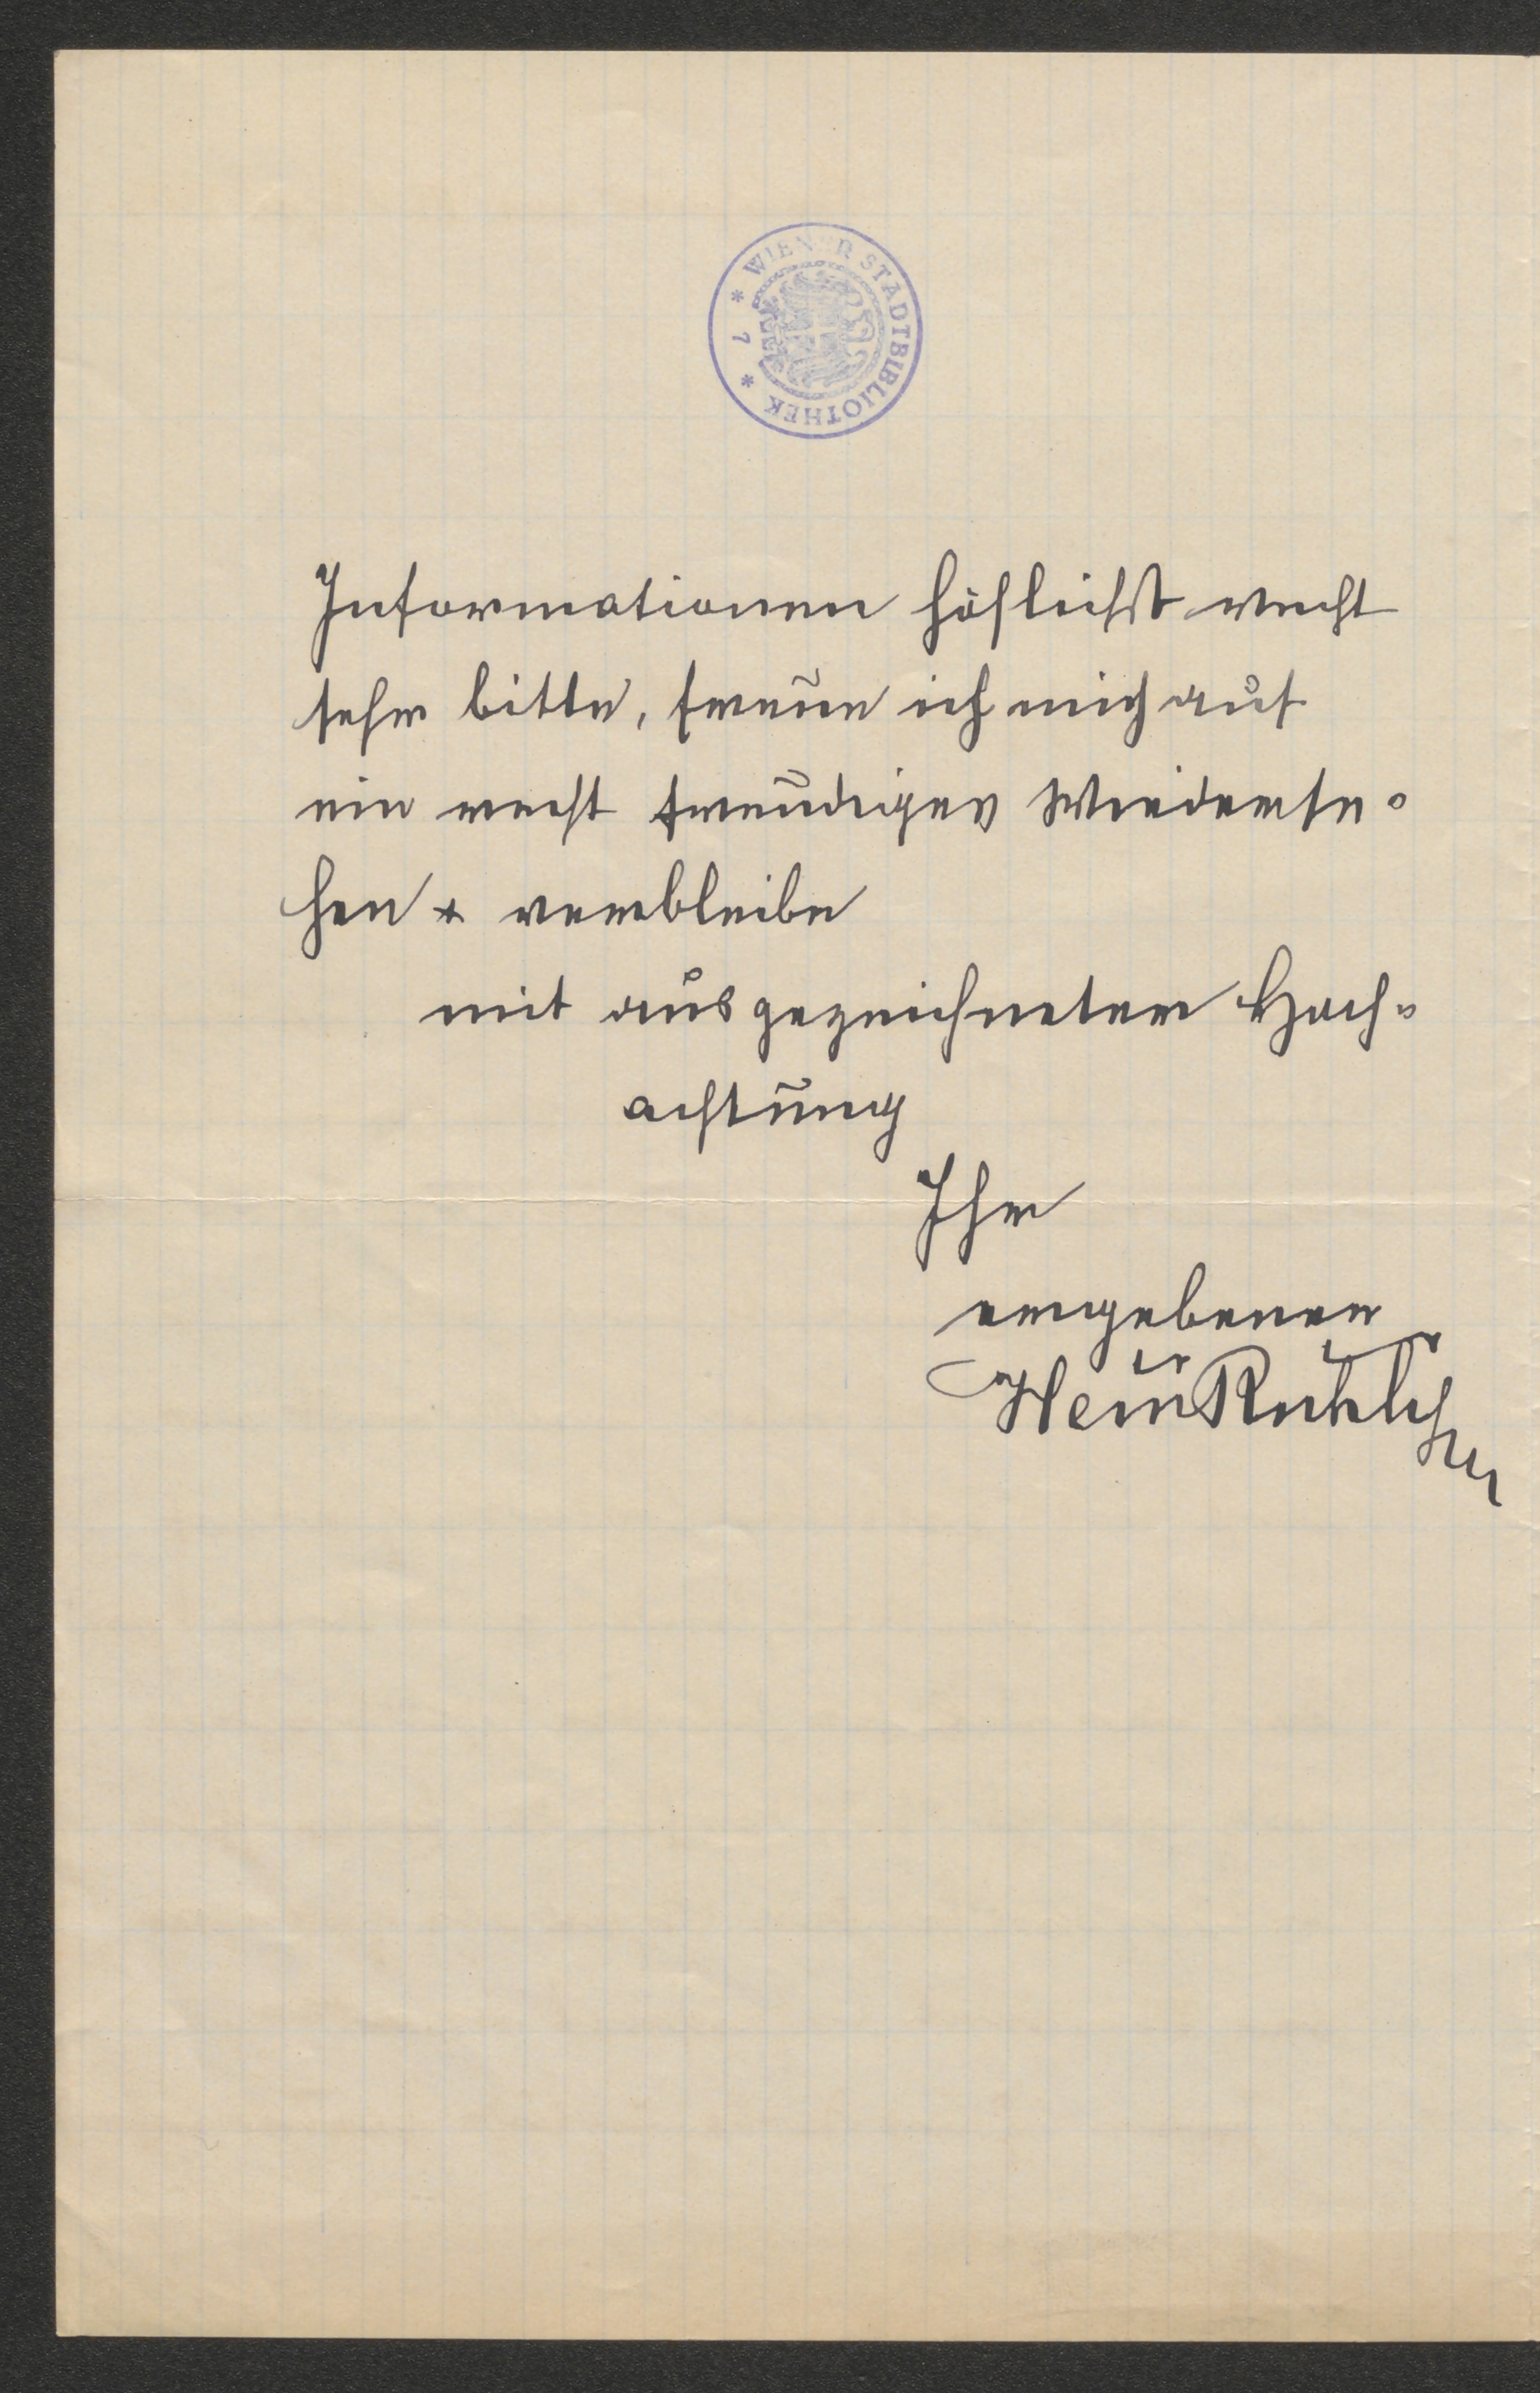 * WIENER STADTBIBLIOTHEK * 7
Informationen höflichst recht
sehr bitte, freue ich mich auf
ein recht freudiges Wiederse-
hen & verbleibe
mit ausgezeichneter Hoch-
achtung
Ihr
ergebener
Hein